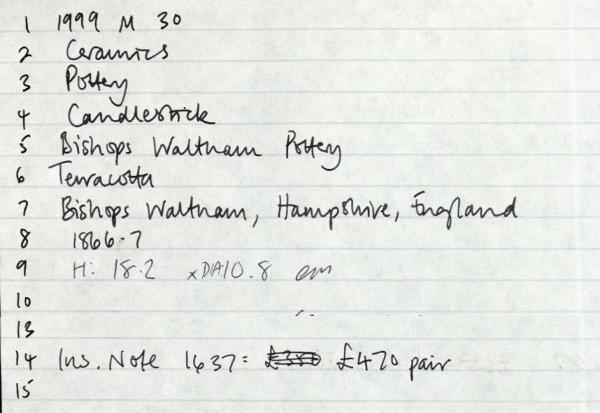 1 1999 M 30
2 Ceramics
3 Pottery
4 Candlestick
5 Bishops Waltham Pottery
6 Terracotta
7 Bishops Waltham, Hampshire, England
8 1866-7
9 H: 18.2 x DA10.8 cm
10
13
14 Ins. Note 1637: £350 £470 pair
15